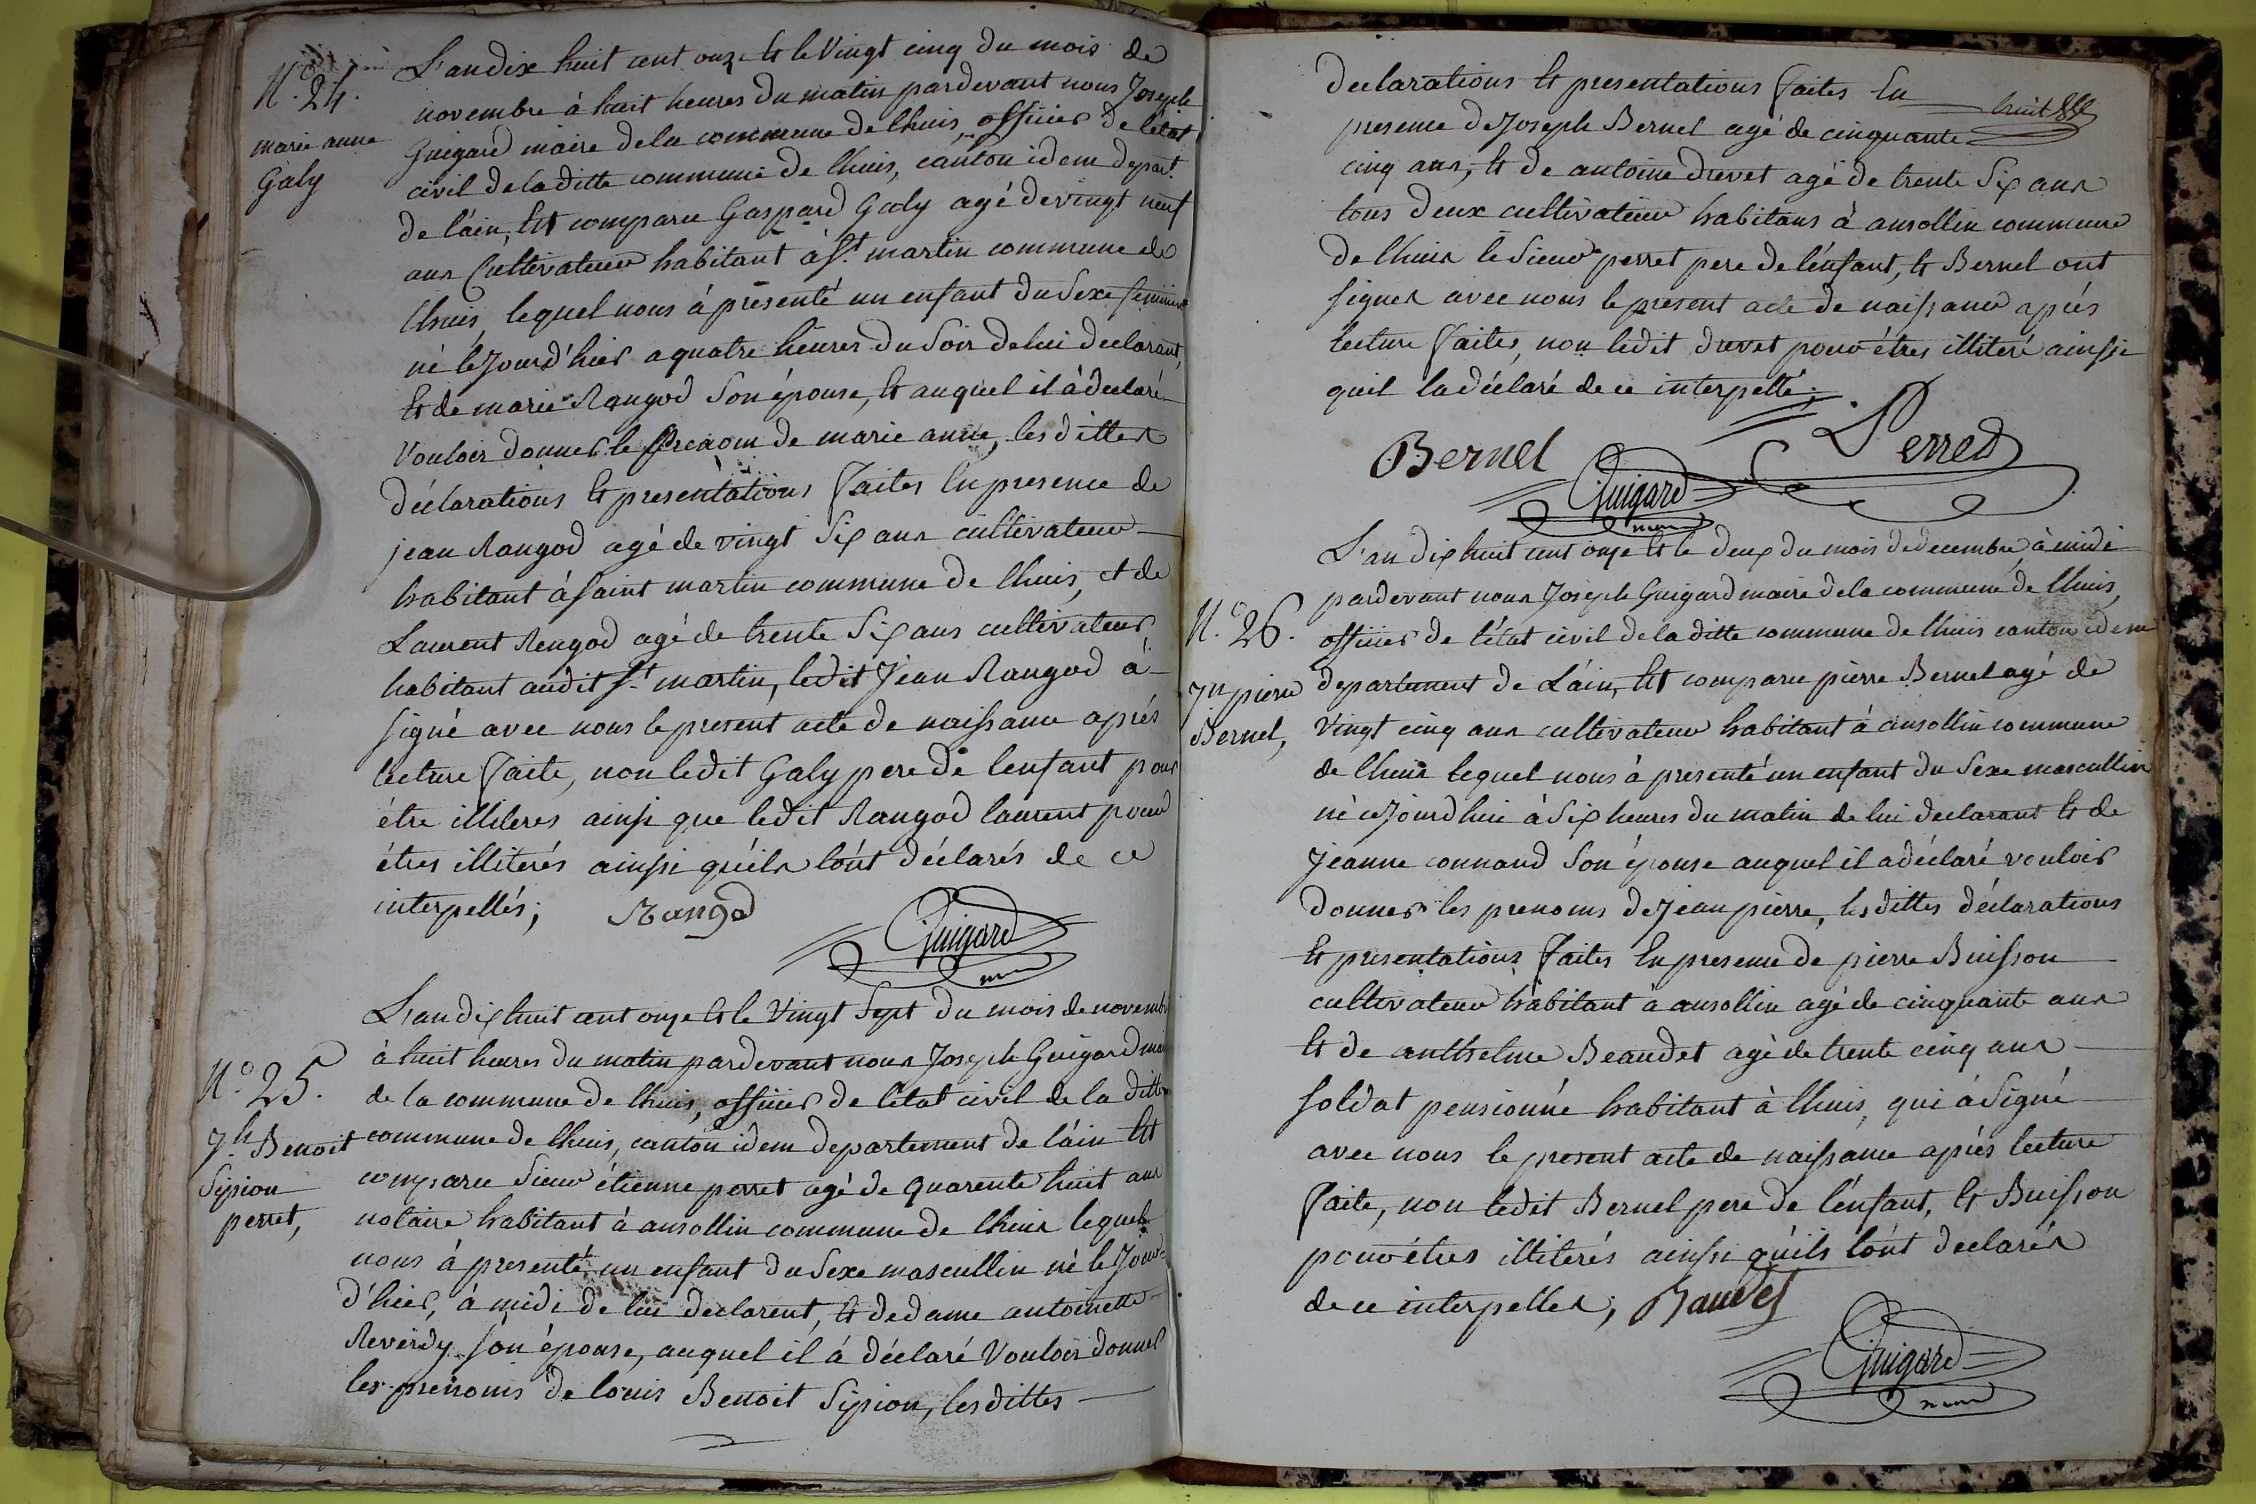 N.° 24.
marie anne
Galy
L'an dix huit cent onze Et le Vingt cinq du mois de
novembre à huit heures du matin pardevant nous Joseph
Guigard maire de la commune de lhuis, officier de l'état
civil de la ditte commune de lhuis, canton idem depart.t
de l'áin, Est comparu Gaspard Galy agé de vingt neuf
ans Cultivateur habitant à S.t martin commune de
lhuis, lequel nous à présenté un enfant du Sexe feminin
né le Jourd'hier a quatre heures du Soir de lui declarant,
Et de marie Rangod Son épouse, Et auquel il à declaré
Vouloir donner le Prenom de marie anne, les dittes
déclarations Et presentations faites En presence de
jean Rangod agé de vingt Six ans cultivateur
habitant à Saint martin commune de lhuis, et de
Laurent Rengod agé de trente Six ans cultivateur,
habitant audit S.t martin, ledit Jean Rangod à
signé avec nous le present acte de naissance aprés
lecture faite, non ledit Galy pere de lenfant pour
étre illiteres ainsi que ledit Rangod laurent pour
étres illiterés ainsi qu'ils lo'nt déclarés de ce
interpellés; Rangod
Guigard
maire
N.° 25.
J.h Benoit
Sipion
perret,
L'an dix huit cent onze Et le Vingt Sept du mois de novemb
à huit heures du matin pardevant nous Joseph Guigard mai
de la commune de lhuis, officier de l'état civil de la ditte
commune de lhuis, canton idem departement de l'áin Est
comparu Sieur étienne perret agé de quarente huit ans
notaire habitant à ansollin commune de lhuis lequel
nous à presenté un enfant du Sexe mascullin né le Jour
d'hier, à midi de lui declarent, Et de dame antoinette
Reverdy son épouse, auquel il à déclaré Vouloir donner
les prenoms de louis Benoit Sipion, les dittes
declarations Et presentations faites En
presence de Joseph Bernel agé de cinquante huit
cinq ans, Et de antoine drevet agé de trente Six ans
tous deux cultivateur habitans à ansollin commune
de lhuis le Sieur perret pere de l'enfant, Et Bernel ont
signes avec nous le present acte de naissance aprés
lecture faites, non ledit drevet pour étres illiteré ainssi
quil la déclaré de ce interpellé;
Bernel Perret
Guigard
maire
N.° 26.
J.n pierre
Bernel,
L'an dix huit cent onze Et le deux du mois de decembre, à midi
pardevant nous Joseph Guigard maire de la commune de lhuis,
officier de l'état civil de la ditte commune de lhuis canton idem
departement de L'áin, Est comparu pierre Bernel agé de
Vingt cinq ans cultivateur habitant à ansollin commune
de lhuis lequel nous à presenté un enfant du Sexe mascullin
né cejourdhui à Six heures du matin de lui declarant Et de
Jeanne connand Son épouse auquel il a déclaré vouloir
donner les prenoms de Jean pierre, les dittes déclarations
Et presentations faites En presence de pierre Buisson
cultivateur habitant à ansollin agé de cinquante ans
Et de anthelme Beaudet agé de trente cinq ans
soldat pensionné habitant à lhuis, qui à Signé
avec nous le present acte de naissance aprés lecture
faite, non ledit Bernel pere de l'enfant, Et Buisson
pour étres illiterés ainsi qu'ils lo'nt declarés
de ce interpelles; Baudet
Guigard
maire